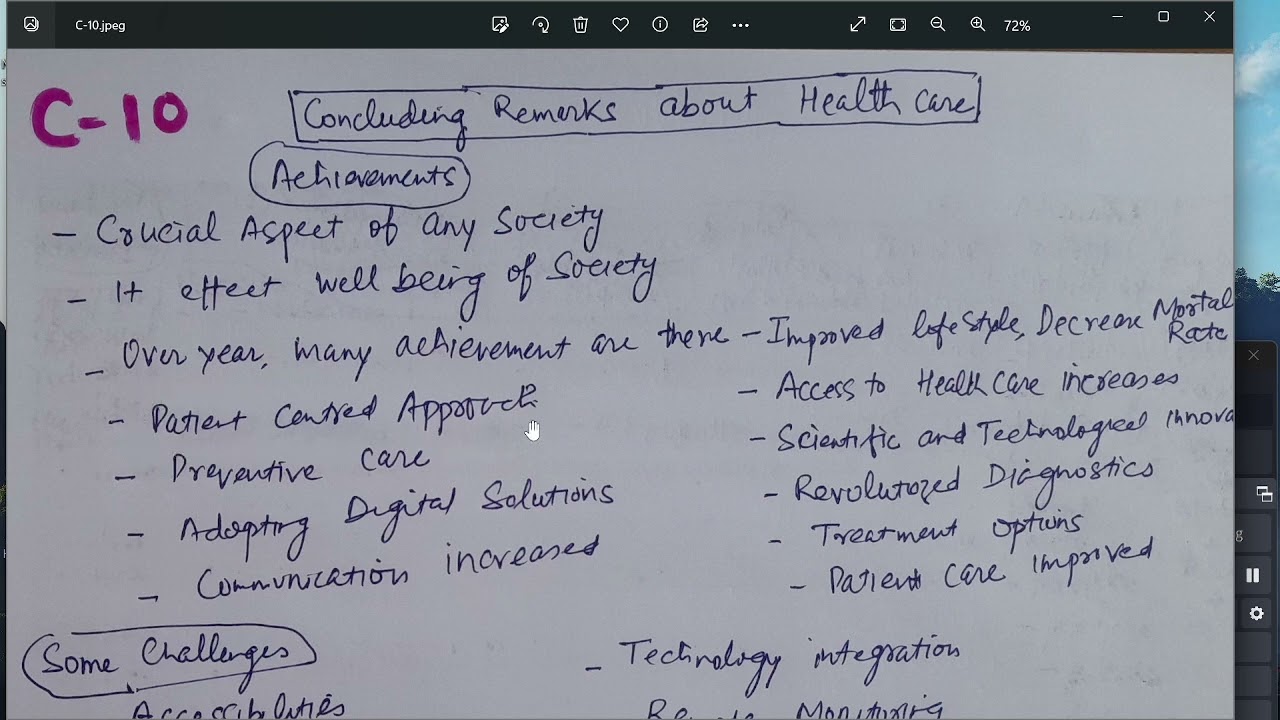 C-10.jpeg
72%
C-10
Concluding Remarks about Health care
Achievements
- Crucial Aspect of any Society
- It effect well being of Society
- Over year, many achievement are there
- Patient Centred Approach
- Preventive care
- Adopting Digital Solutions
- Communication increased
- Improved lifestyle, Decrease Mortal
Rate
- Access to Health Care increases
- Scientific and Technological innova
- Revolutized Diagnostics
- Treatment options
- Patient care improved
Some Challenges
Accessibilities
- Technology integration
Monitoring
g